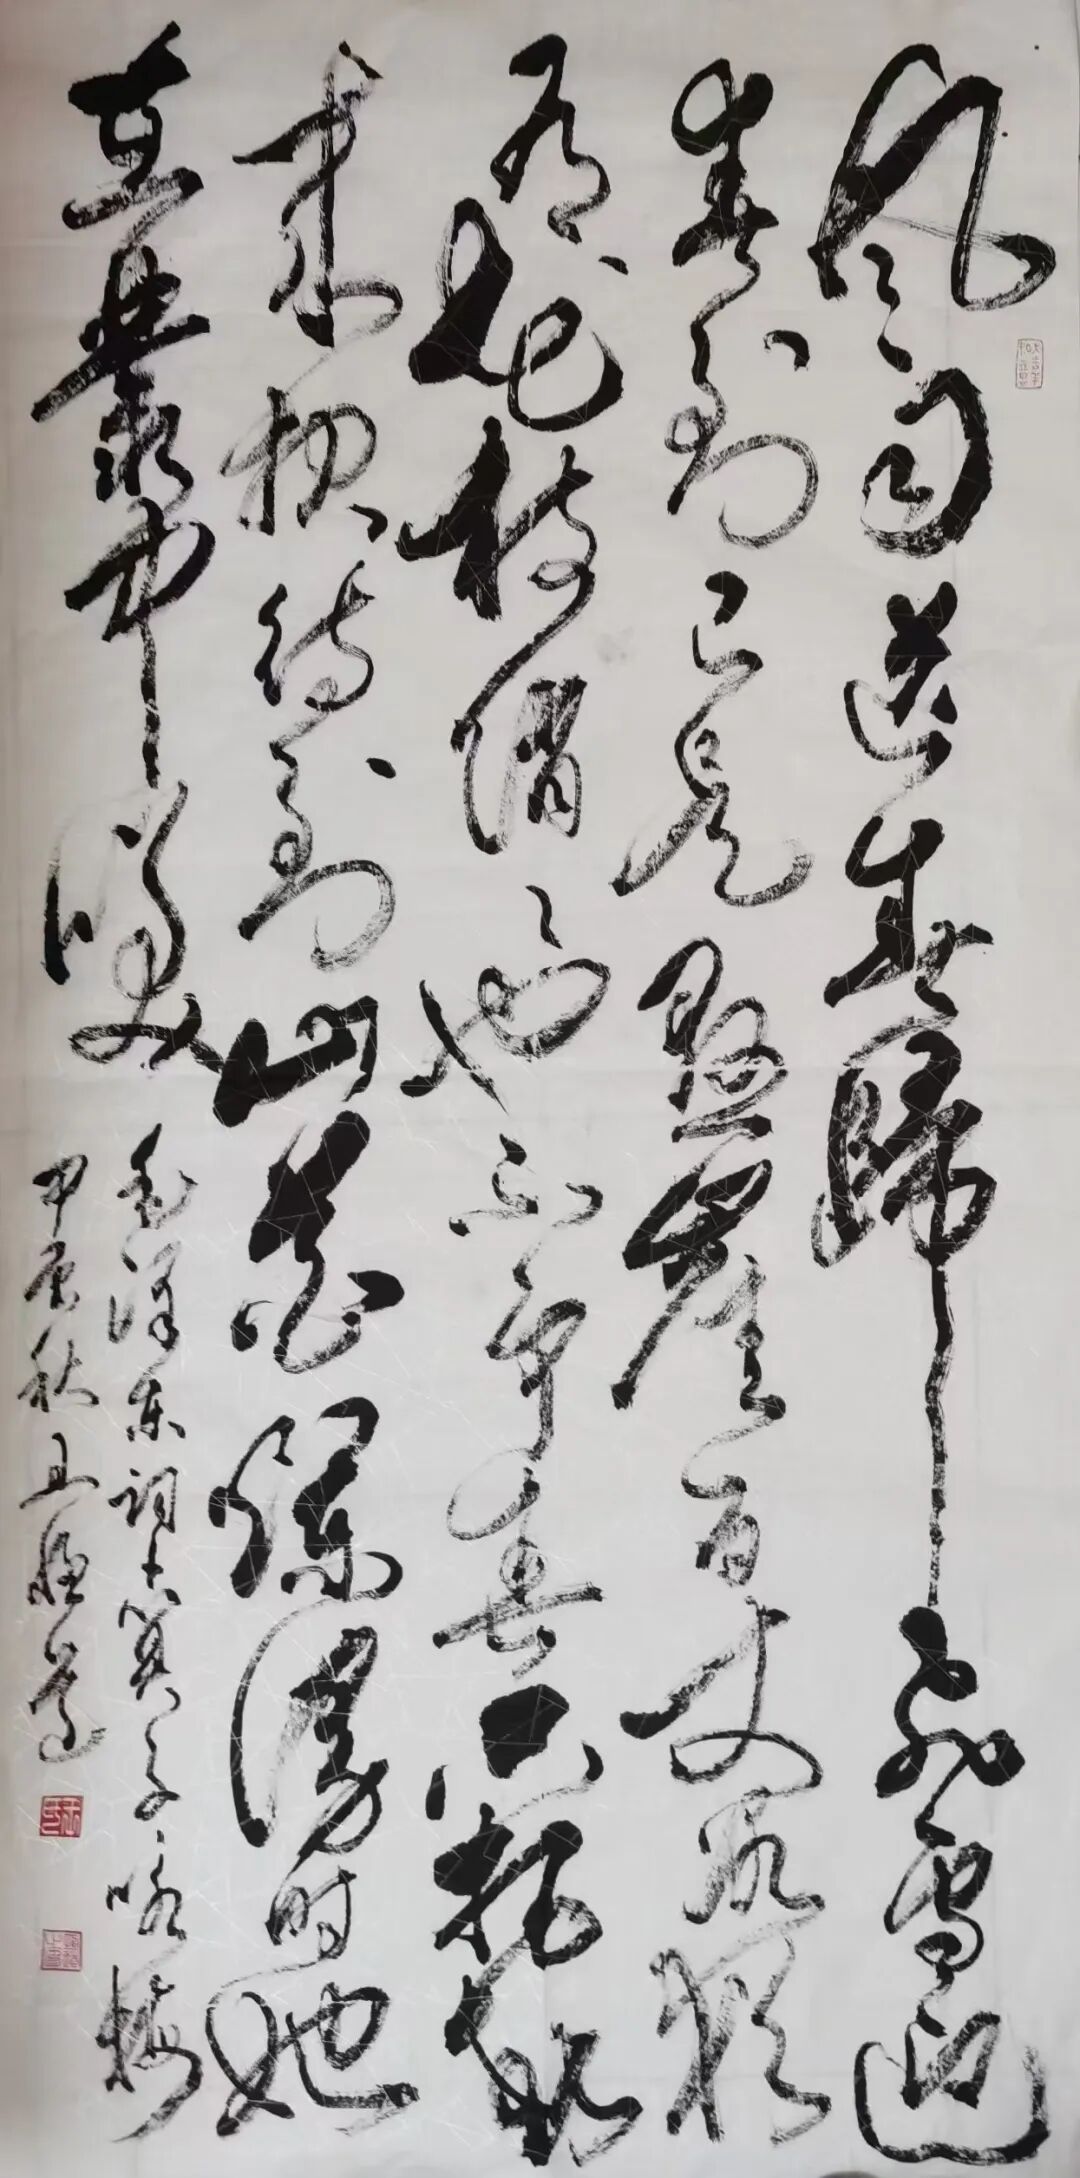 风雨送春歸飛雪迎
春到已是懸崖百丈冰猶
有花枝俏々也不争春只把春
来报待到山花爛漫时她
在叢中笑
毛澤东词卜算子咏梅
甲辰秋